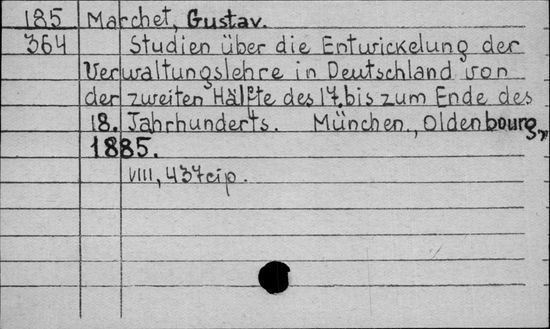 185 Marchet, Gustav.
364 Studien über die Entwickelung der
Verwaltungslehre in Deutschland von
der zweiten Hälfte des 17. bis zum Ende des
18. Jahrhunderts. München, Oldenbourg,
1885.
VIII, 437 p.